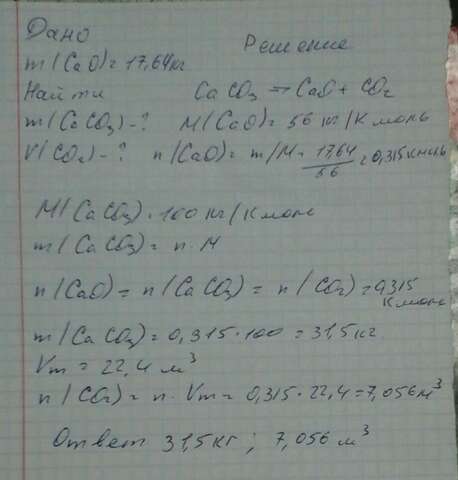 Дано
Решение
m(CaO)=17,64кг
Найти CaCO₃ → CaO + CO₂
m(CaCO₃)-? M(CaO)=56 кг/Кмоль
V(CO₂)-? n(CaO)= m/M= 17,64/56 =0,315Кмоль
M(CaCO₃)·100 кг/Кмоль
m(CaCO₃)= n·M
n(CaO)= n(CaCO₃)= n(CO₂)=0,315
Кмоль
m(CaCO₃)=0,315·100=31,5кг
Vm = 22,4 м³
n(CO₂)= n·Vm= 0,315·22,4=7,056м³
Ответ 31,5кг; 7,056м³